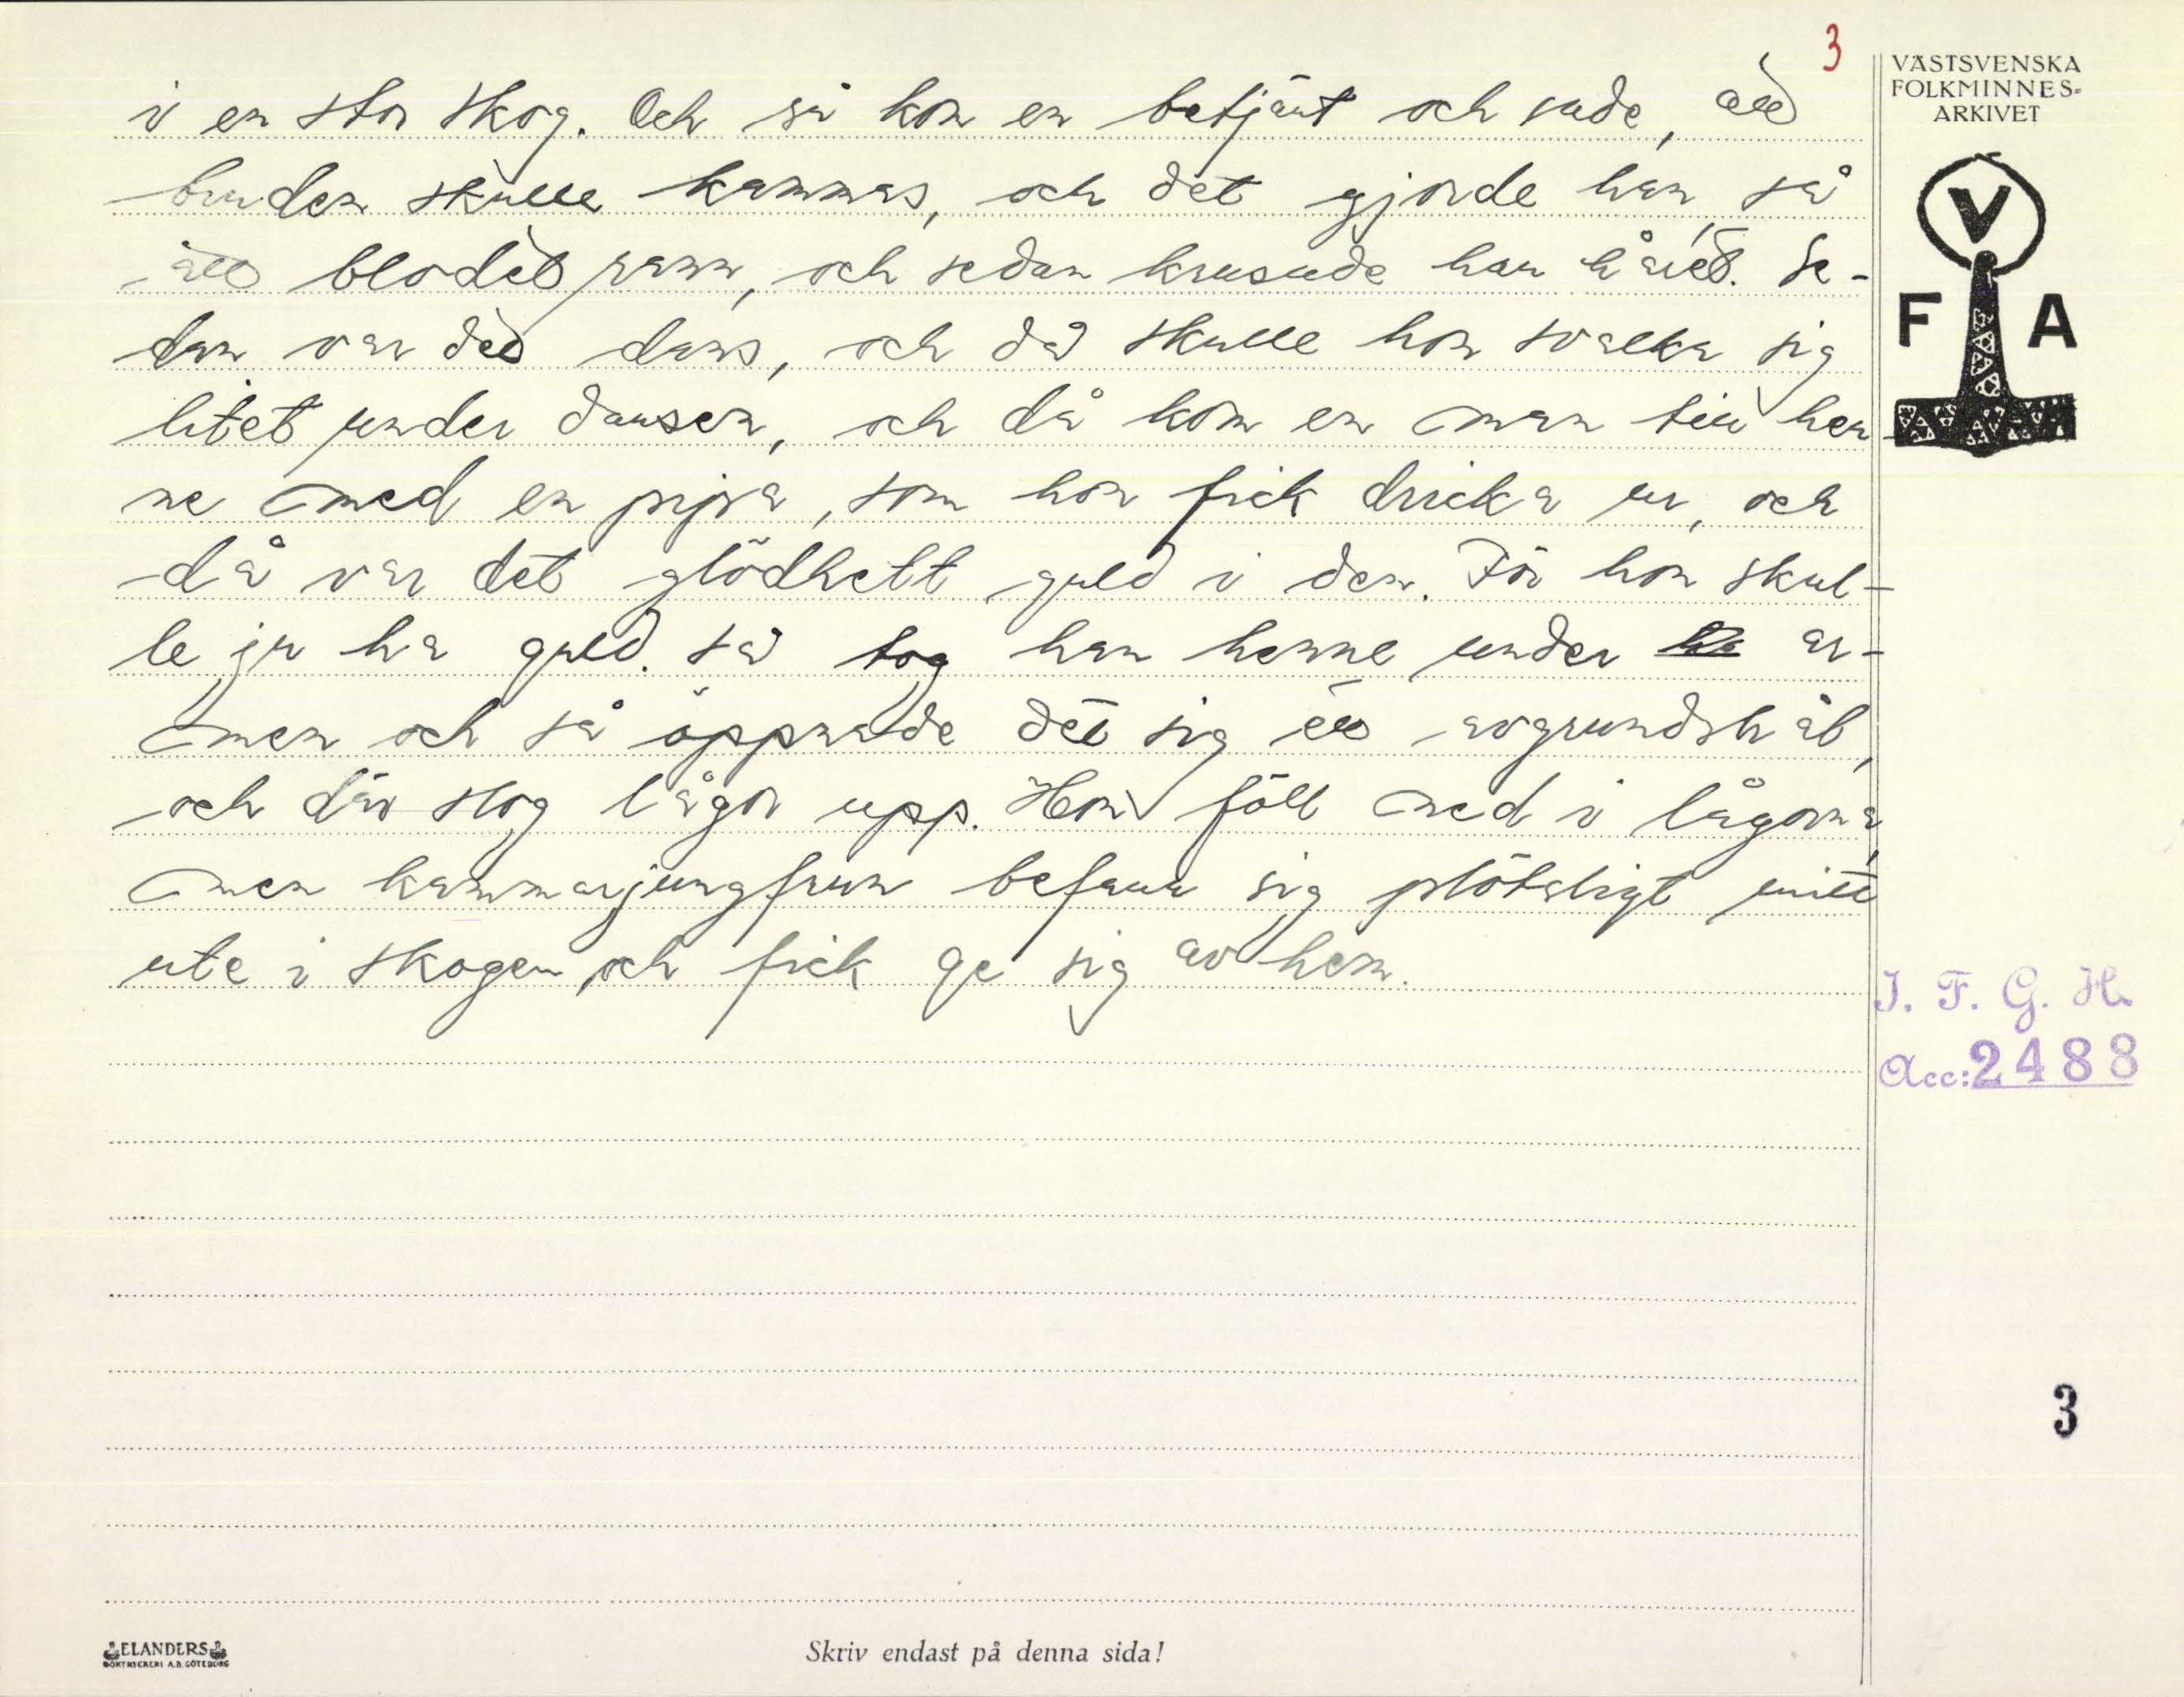 3
VÄSTSVENSKA
FOLKMINNES-
ARKIVET
V
F A
i en stor skog. Och så kom en betjänt och sade, att
bruden skulle kammas, och det gjorde han, så
att blodet rann, och sedan krusade han håret. Se-
dan var det dans, och då skulle hon svalka sig
litet under dansen, och då kom en man till hen
ne med en pipa, som hon fick dricka ur, och
då var det glödhett guld i den. För hon skul-
le ju ha guld. Så tog han henne under ar-
men och så öppnade det sig ett avgrundshål,
och där slog lågor upp. Hon föll ned i lågorna,
men kammarjungfrun befann sig plötsligt mitt
ute i skogen och fick ge sig av hem.
I. F. G. H.
Acc: 2488
3
ELANDERS
BOKTRYCKERI A.B. GÖTEBORG
Skriv endast på denna sida!